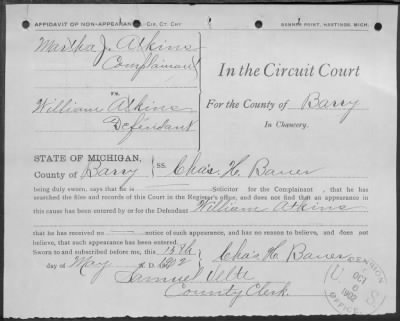 AFFIDAVIT OF NON-APPEARANCE—CIR. CT. CHY
BANNER PRINT, HASTINGS, MICH.
Martha J. Atkins
Complainant
vs.
William Atkins
Defendant
In the Circuit Court
For the County of Barry
In Chancery.
STATE OF MICHIGAN,
County of Barry } ss. Chas. H. Bauer
being duly sworn, says that he is Solicitor for the Complainant, that he has
searched the files and records of this Court in the Register's office, and does not find that an appearance in
this cause has been entered by or for the Defendant William Atkins
that he has received no notice of such appearance, and has no reason to believe, and does not
believe, that such appearance has been entered.
Sworn to and subscribed before me, this 15th
day of May A. D. 1902
Chas H Bauer
Samuel
County Clerk.
PENSION
OCT
6
1902
OFFICE
U S